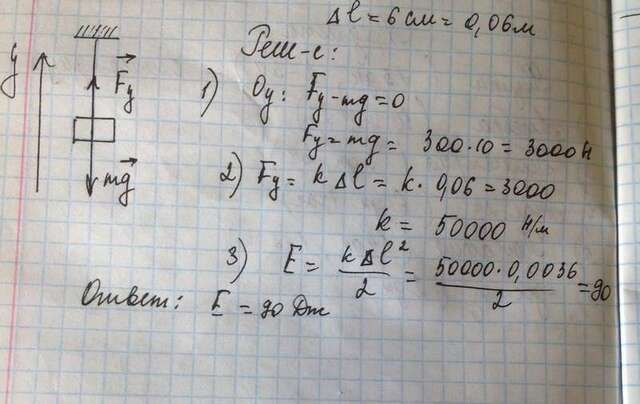 Δl = 6 см = 0,06 м
Реш-е:
y
F⃗y
mg⃗
1) Oy: Fy - mg = 0
Fy = mg = 300·10 = 3000 Н
2) Fy = kΔl = k · 0,06 = 3000
k = 50000 Н/м
3) E = kΔl²/2 = 50000·0,0036/2 = 90
Ответ: E = 90 Дж